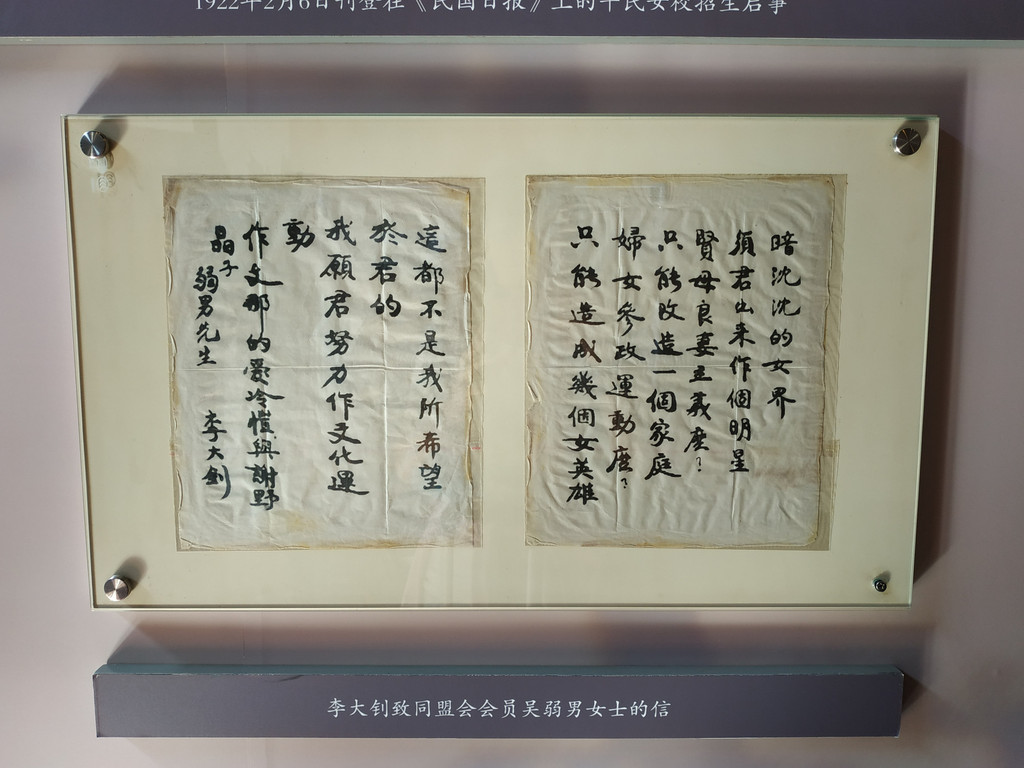 1922年2月6日刊登在《民国日报》上的平民女校招生启事
暗沈沈的女界
須君出来作個明星
賢母良妻主義麽？
只能改造一個家庭
婦女參政運動麽？
只能造成幾個女英雄
這都不是我所希望
於君的
我願君努力作文化運
動
作文那的愛冷愷與謝野
晶子
弱男先生
李大釗
李大钊致同盟会会员吴弱男女士的信